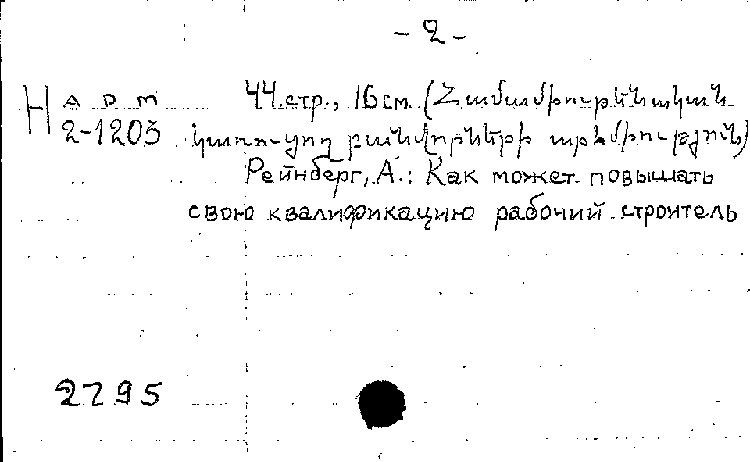 - 2 -
Н арм 44 стр., 16 см. (Համամիութենական
2-1203 կառուցող բանվորների արհմիություն)
Рейнберг, А.: Как может повышать
свою квалификацию рабочий строитель
2295